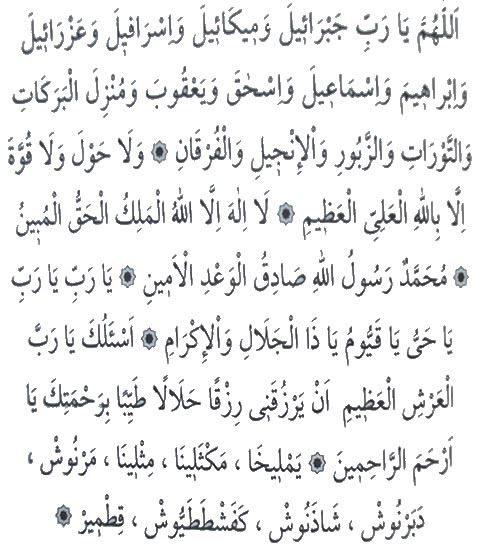 اَللّٰهُمَّ يَا رَبِّ جَبْرَائِيلَ وَمِيكَائِيلَ وَاِسْرَافِيلَ وَعَزْرَائِيلَ
وَاِبْرَاهِيمَ وَاِسْمَاعِيلَ وَاِسْحٰقَ وَيَعْقُوبَ وَمُنْزِلَ الْبَرَكَاتِ
وَالتَّوْرَاتِ وَالزَّبُورِ وَالْاِنْجِيلِ وَالْفُرْقَانِ ۞ وَلَا حَوْلَ وَلَا قُوَّةَ
اِلَّا بِاللهِ الْعَلِىِّ الْعَظِيمِ ۞ لَا اِلٰهَ اِلَّا اللهُ الْمَلِكُ الْحَقُّ الْمُبِينُ
۞ مُحَمَّدٌ رَسُولُ اللهِ صَادِقُ الْوَعْدِ الْاَمِينِ ۞ يَا رَبِّ يَا رَبِّ
يَا حَىُّ يَا قَيُّومُ يَا ذَا الْجَلَالِ وَالْاِكْرَامِ ۞ اَسْئَلُكَ يَا رَبَّ
الْعَرْشِ الْعَظِيمِ اَنْ يَرْزُقَنِى رِزْقًا حَلَالًا طَيِّبًا بِرَحْمَتِكَ يَا
اَرْحَمَ الرَّاحِمِينَ ۞ يَمْلِيخَا ، مَكْثَلِينَا ، مِثْلِينَا ، مَرْنُوشْ ،
دَبَرْنُوشْ ، شَاذَنُوشْ ، كَفَشْطَطَيُّوشْ ، قِطْمِيرْ ۞